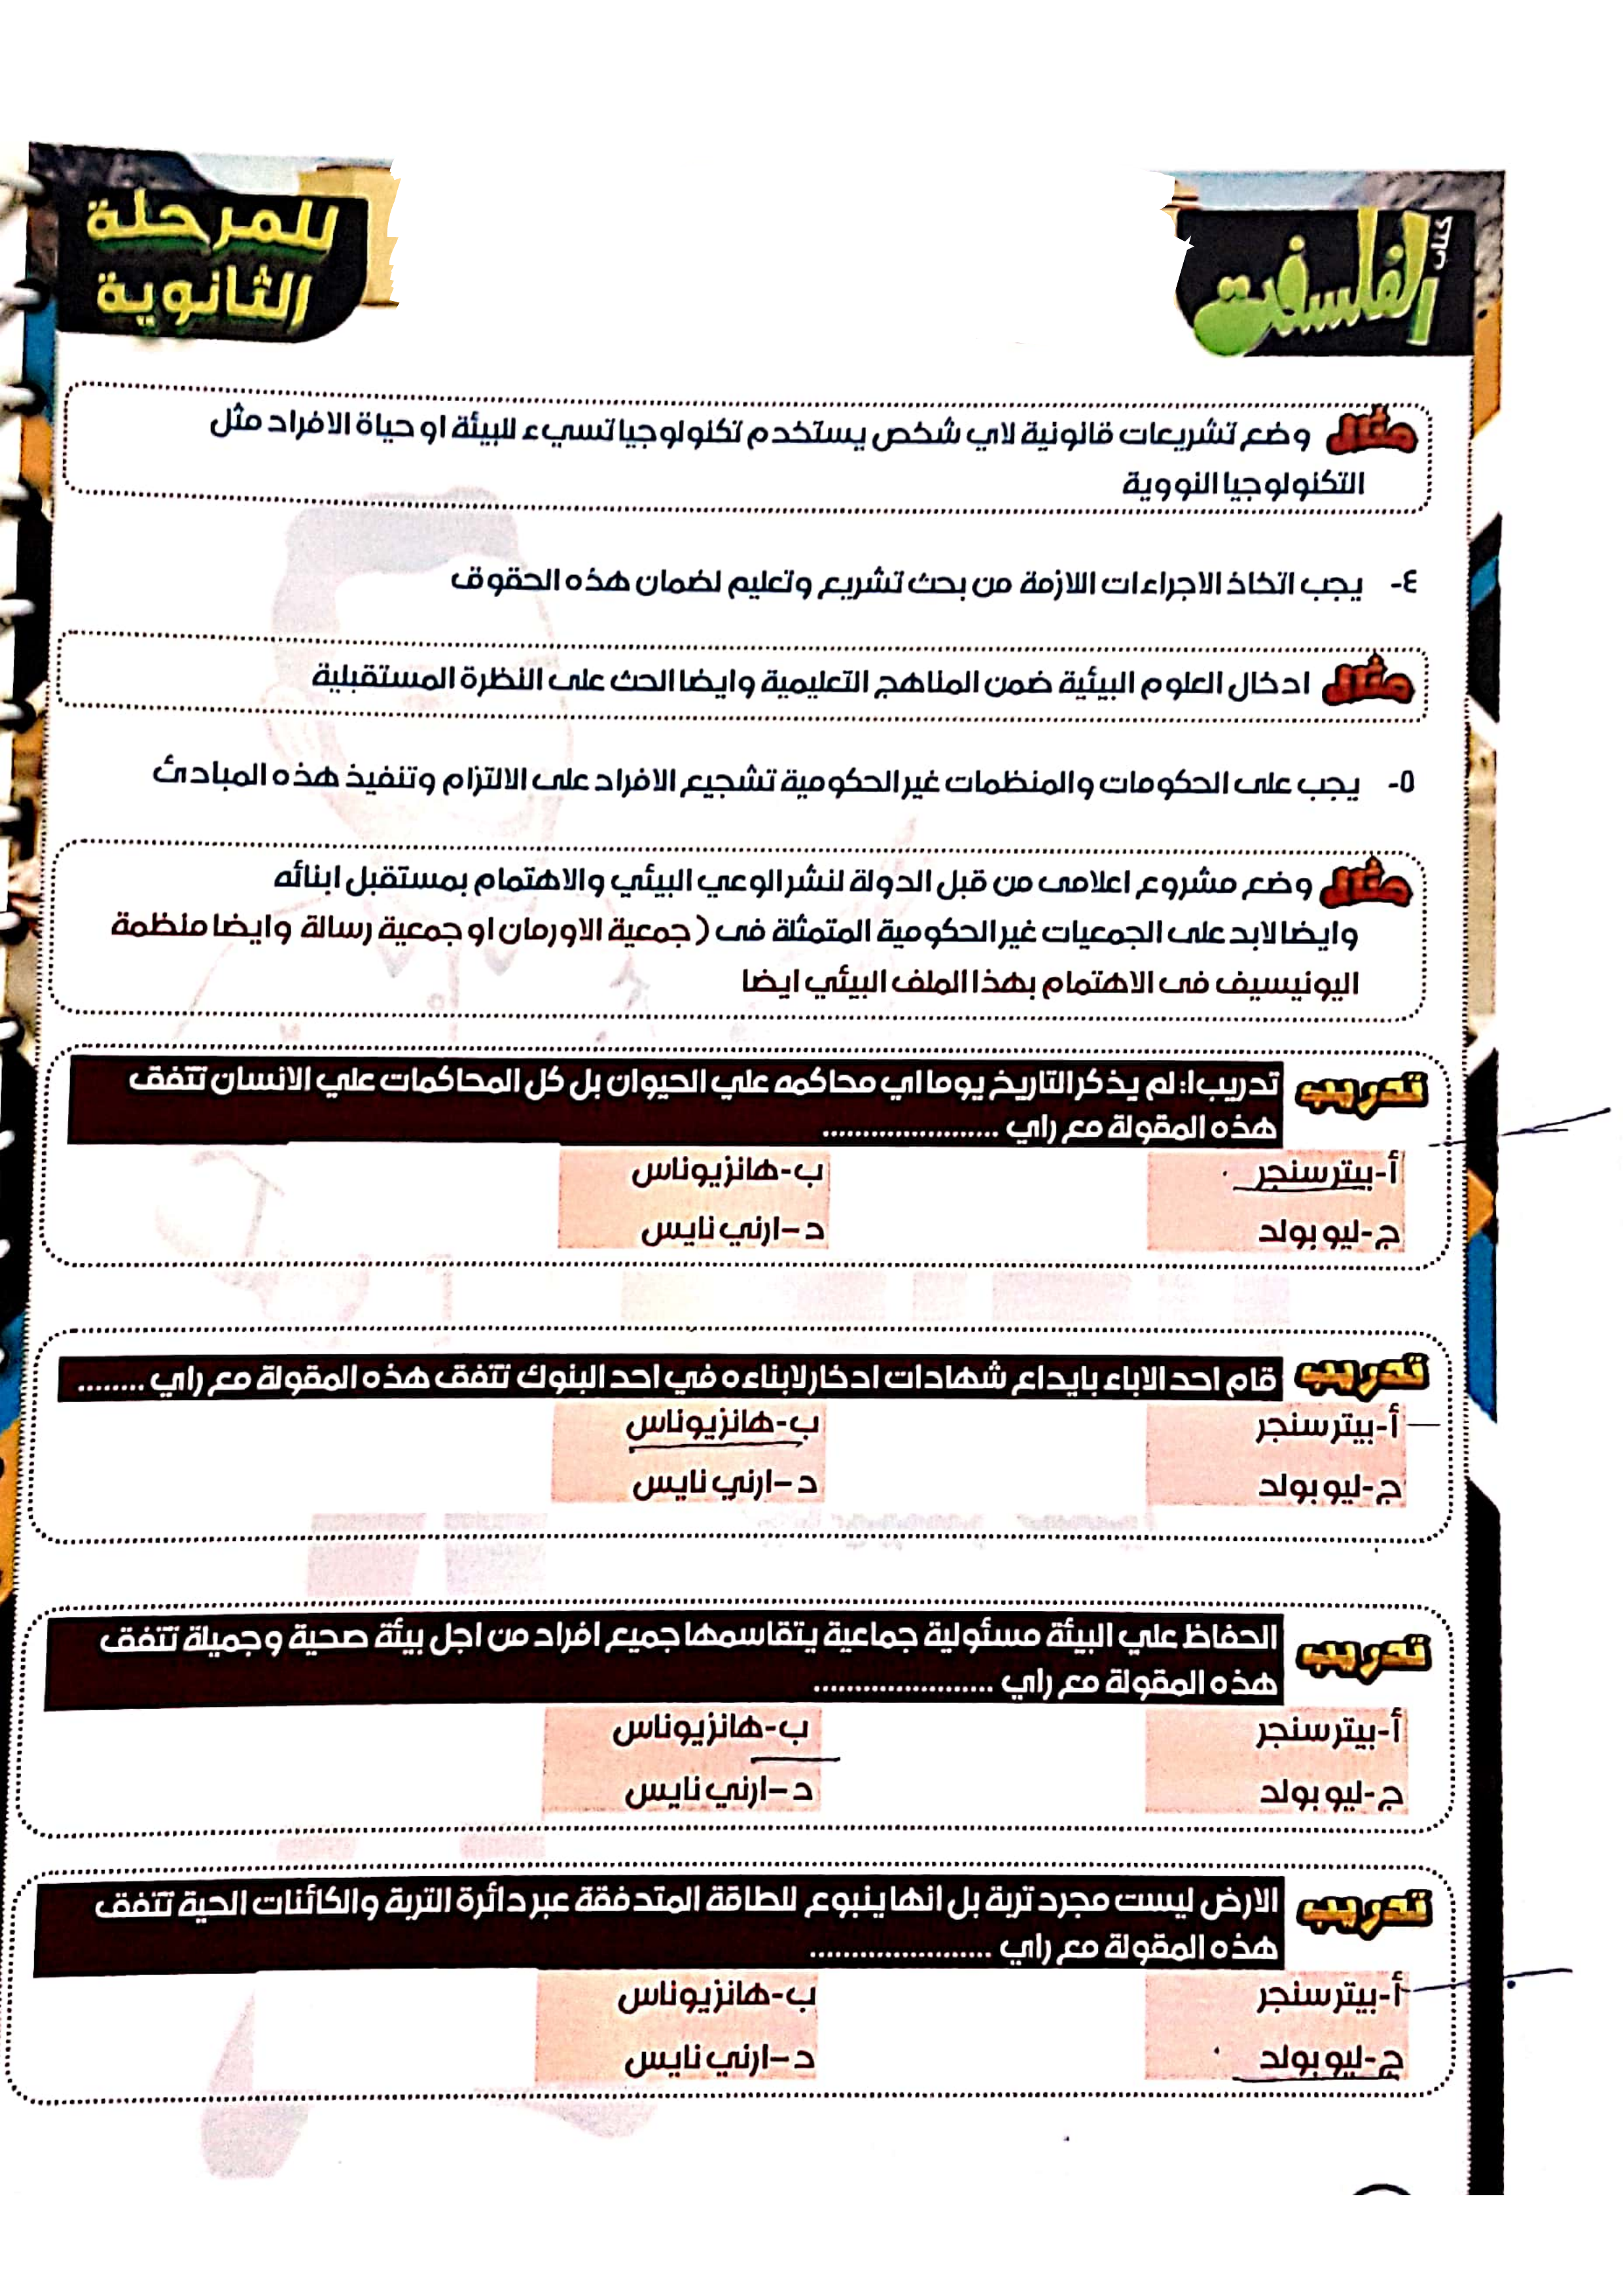 كتاب
الفلسفة
للمرحلة
الثانوية
مثال وضع تشريعات قانونية لاي شخص يستخدم تكنولوجيا تسيء للبيئة او حياة الافراد مثل
التكنولوجيا النووية
٤- يجب اتخاذ الاجراءات اللازمة من بحث تشريع وتعليم لضمان هذه الحقوق
مثال ادخال العلوم البيئية ضمن المناهج التعليمية وايضا الحث على النظرة المستقبلية
٥- يجب على الحكومات والمنظمات غير الحكومية تشجيع الافراد على الالتزام وتنفيذ هذه المبادئ
مثال وضع مشروع اعلامى من قبل الدولة لنشر الوعي البيئي والاهتمام بمستقبل ابنائه
وايضا لابد على الجمعيات غير الحكومية المتمثلة فى ( جمعية الاورمان او جمعية رسالة وايضا منظمة
اليونيسيف فى الاهتمام بهذا الملف البيئي ايضا
تدريب تدريب١: لم يذكر التاريخ يوما اي محاكمه علي الحيوان بل كل المحاكمات علي الانسان تتفق
هذه المقولة مع راي .....................
أ-بيتر سنجر ب-هانزيوناس
ج-ليو بولد د–ارني نايس
تدريب قام احد الاباء بايداع شهادات ادخار لابناءه في احد البنوك تتفق هذه المقولة مع راي ........
أ-بيتر سنجر ب-هانزيوناس
ج-ليو بولد د–ارني نايس
تدريب الحفاظ علي البيئة مسئولية جماعية يتقاسمها جميع افراد من اجل بيئة صحية وجميلة تتفق
هذه المقولة مع راي .....................
أ-بيتر سنجر ب-هانزيوناس
ج-ليو بولد د–ارني نايس
تدريب الارض ليست مجرد تربة بل انها ينبوع للطاقة المتدفقة عبر دائرة التربة والكائنات الحية تتفق
هذه المقولة مع راي .....................
أ-بيتر سنجر ب-هانزيوناس
ج-ليو بولد د–ارني نايس